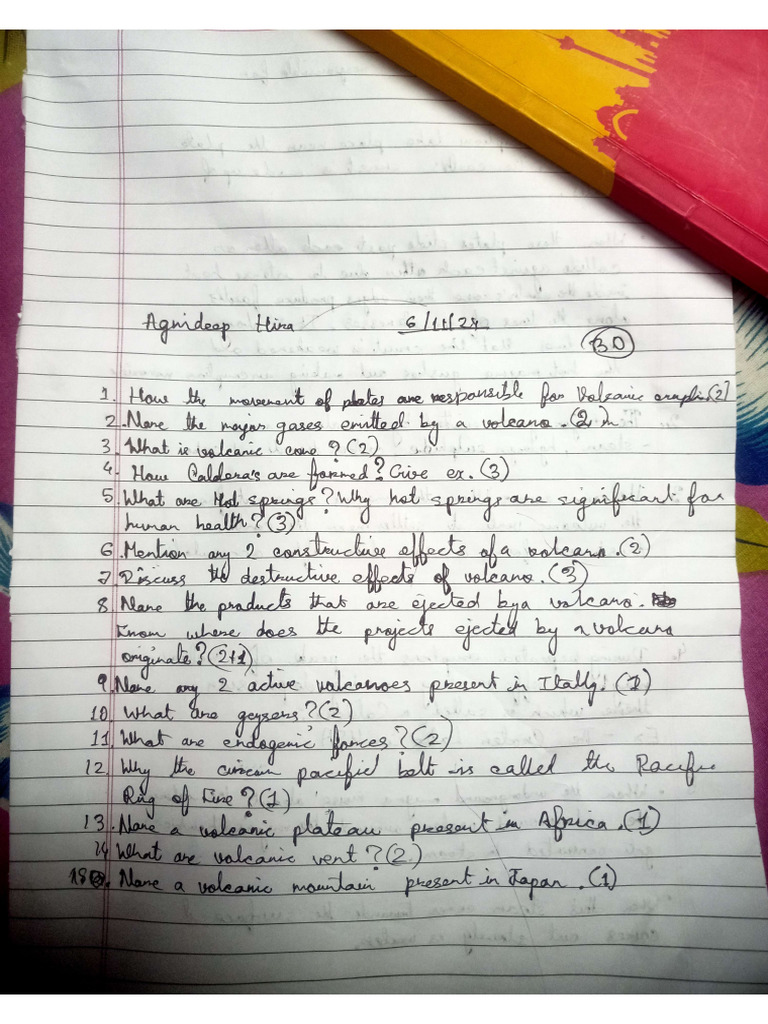 Agnideep Hira 6/11/24
30
1. How the movement of plates are responsible for Volcanic (2)
2. Name the major gases emitted by a volcano. (2 m
3. What is volcanic cone ? (2)
4. How Caldera's are formed? Give ex. (3)
5. What are Hot springs? Why hot springs are significant for
human health? (3)
6. Mention any 2 constructive effects of a volcano. (2)
7. Discuss the destructive effects of volcano. (3)
8. Name the products that are ejected by a volcano.
From where does the projects ejected by a volcano
originate? (2+1)
9. Name any 2 active volcanoes present in Itally. (1)
10. What are geysers? (2)
11. What are endogenic forces? (2)
12. Why the circum pacific belt is called the Pacific
Ring of Fire? (1)
13. Name a volcanic plateau present in Africa. (1)
14 What are volcanic vent? (2)
15. Name a volcanic mountain present in Japan. (1)